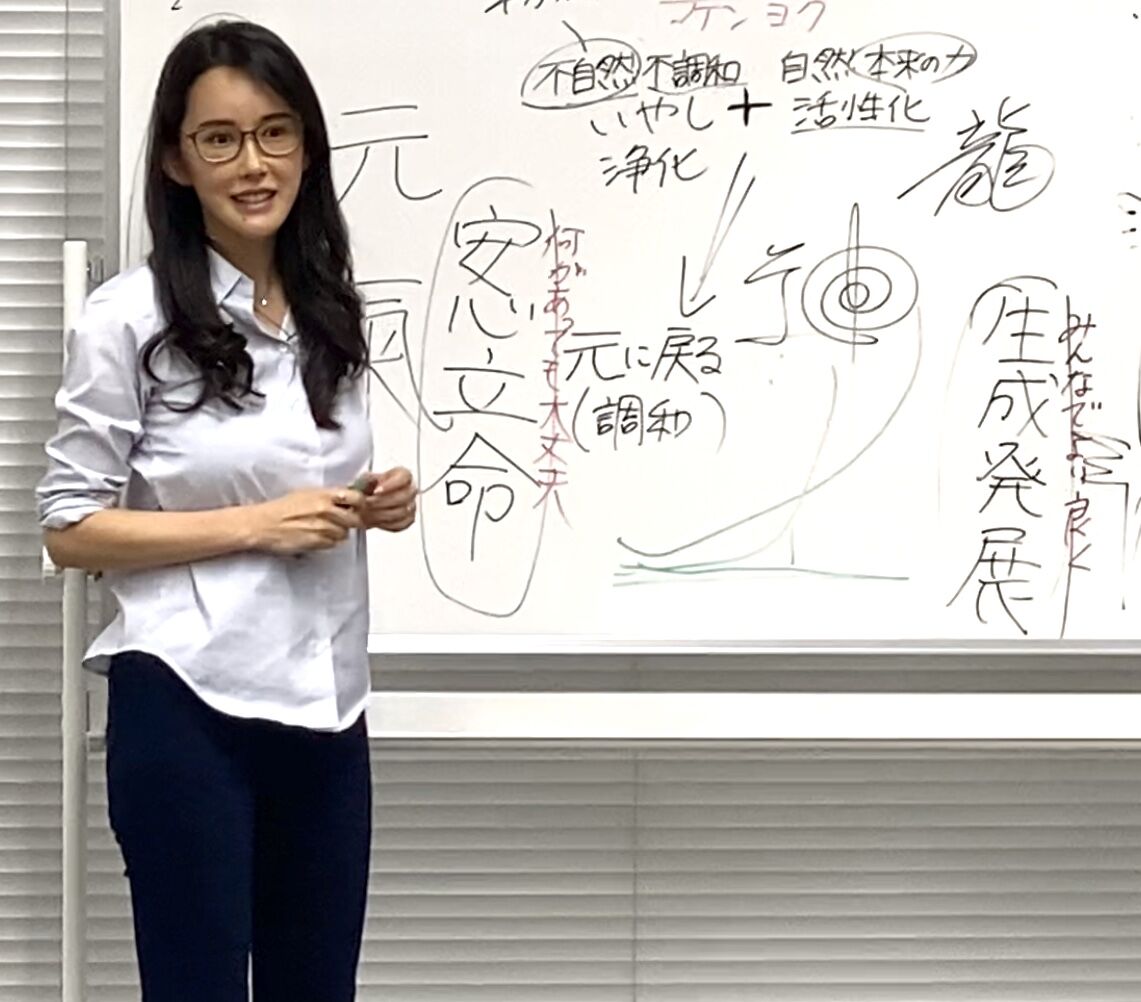 ケンヨク
不自然 不調和 自然 本来の力
いやし + 活性化
浄化
元
氣
安心立命
何があっても大丈夫
元に戻る
(調和)
龍
生成発展